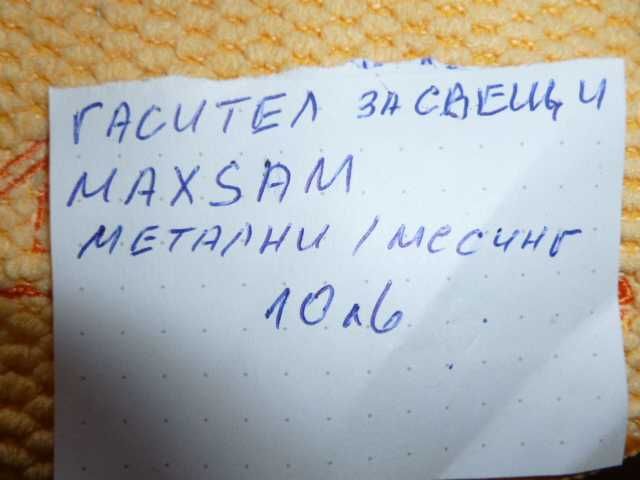 ГАСИТЕЛ ЗА СВЕЩИ
MAXSAM
МЕТАЛНИ / МЕСИНГ
10 лв